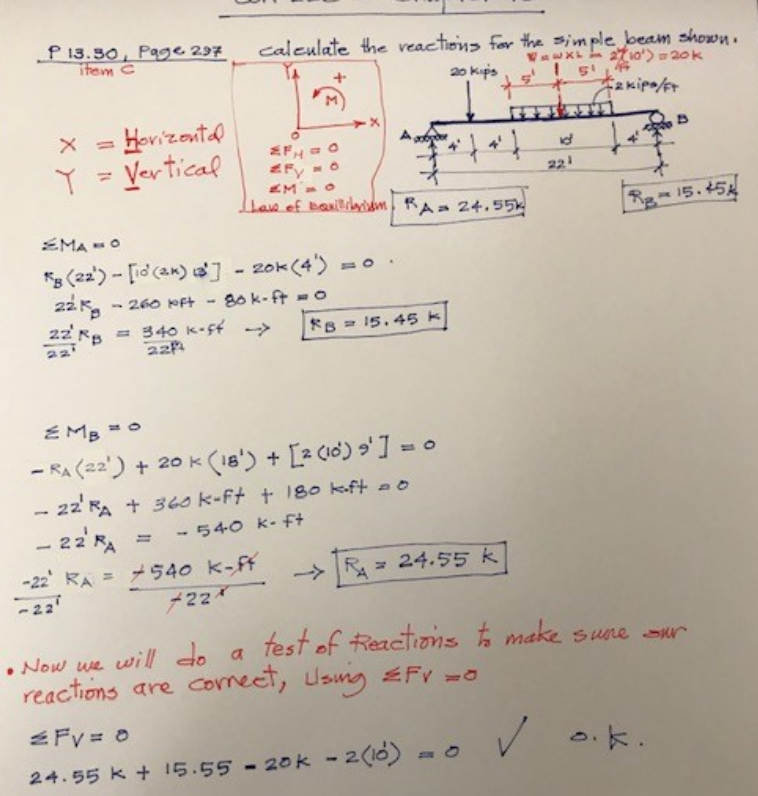 P 13.30, Page 297 calculate the reactions for the simple beam shown.
item C
W = WXL = 2(10') = 20K
20 kips 5' 5' 2 kips/ft
Y + M X
O
A B
4' 4' 10' 4'
22'
X = Horizontal
Y = Vertical
ΣFH = 0
ΣFV = 0
ΣM = 0
Law of Equilibrium
RA = 24.55k
RB = 15.45k
ΣMA = 0
RB (22') - [10' (2K) 13'] - 20K (4') = 0
22' RB - 260 k-ft - 80 k-ft = 0
22' RB = 340 k-ft → RB = 15.45 K
22' 22ft
ΣMB = 0
- RA (22') + 20 K (18') + [2 (10') 9'] = 0
- 22' RA + 360 K-ft + 180 k-ft = 0
- 22' RA = - 540 k-ft
-22' RA = -540 K-ft → RA = 24.55 K
-22' -22'
• Now we will do a test of Reactions to make sure our
reactions are correct, Using ΣFV = 0
ΣFV = 0
24.55 K + 15.55 - 20K - 2(10') = 0 ✓ O.K.